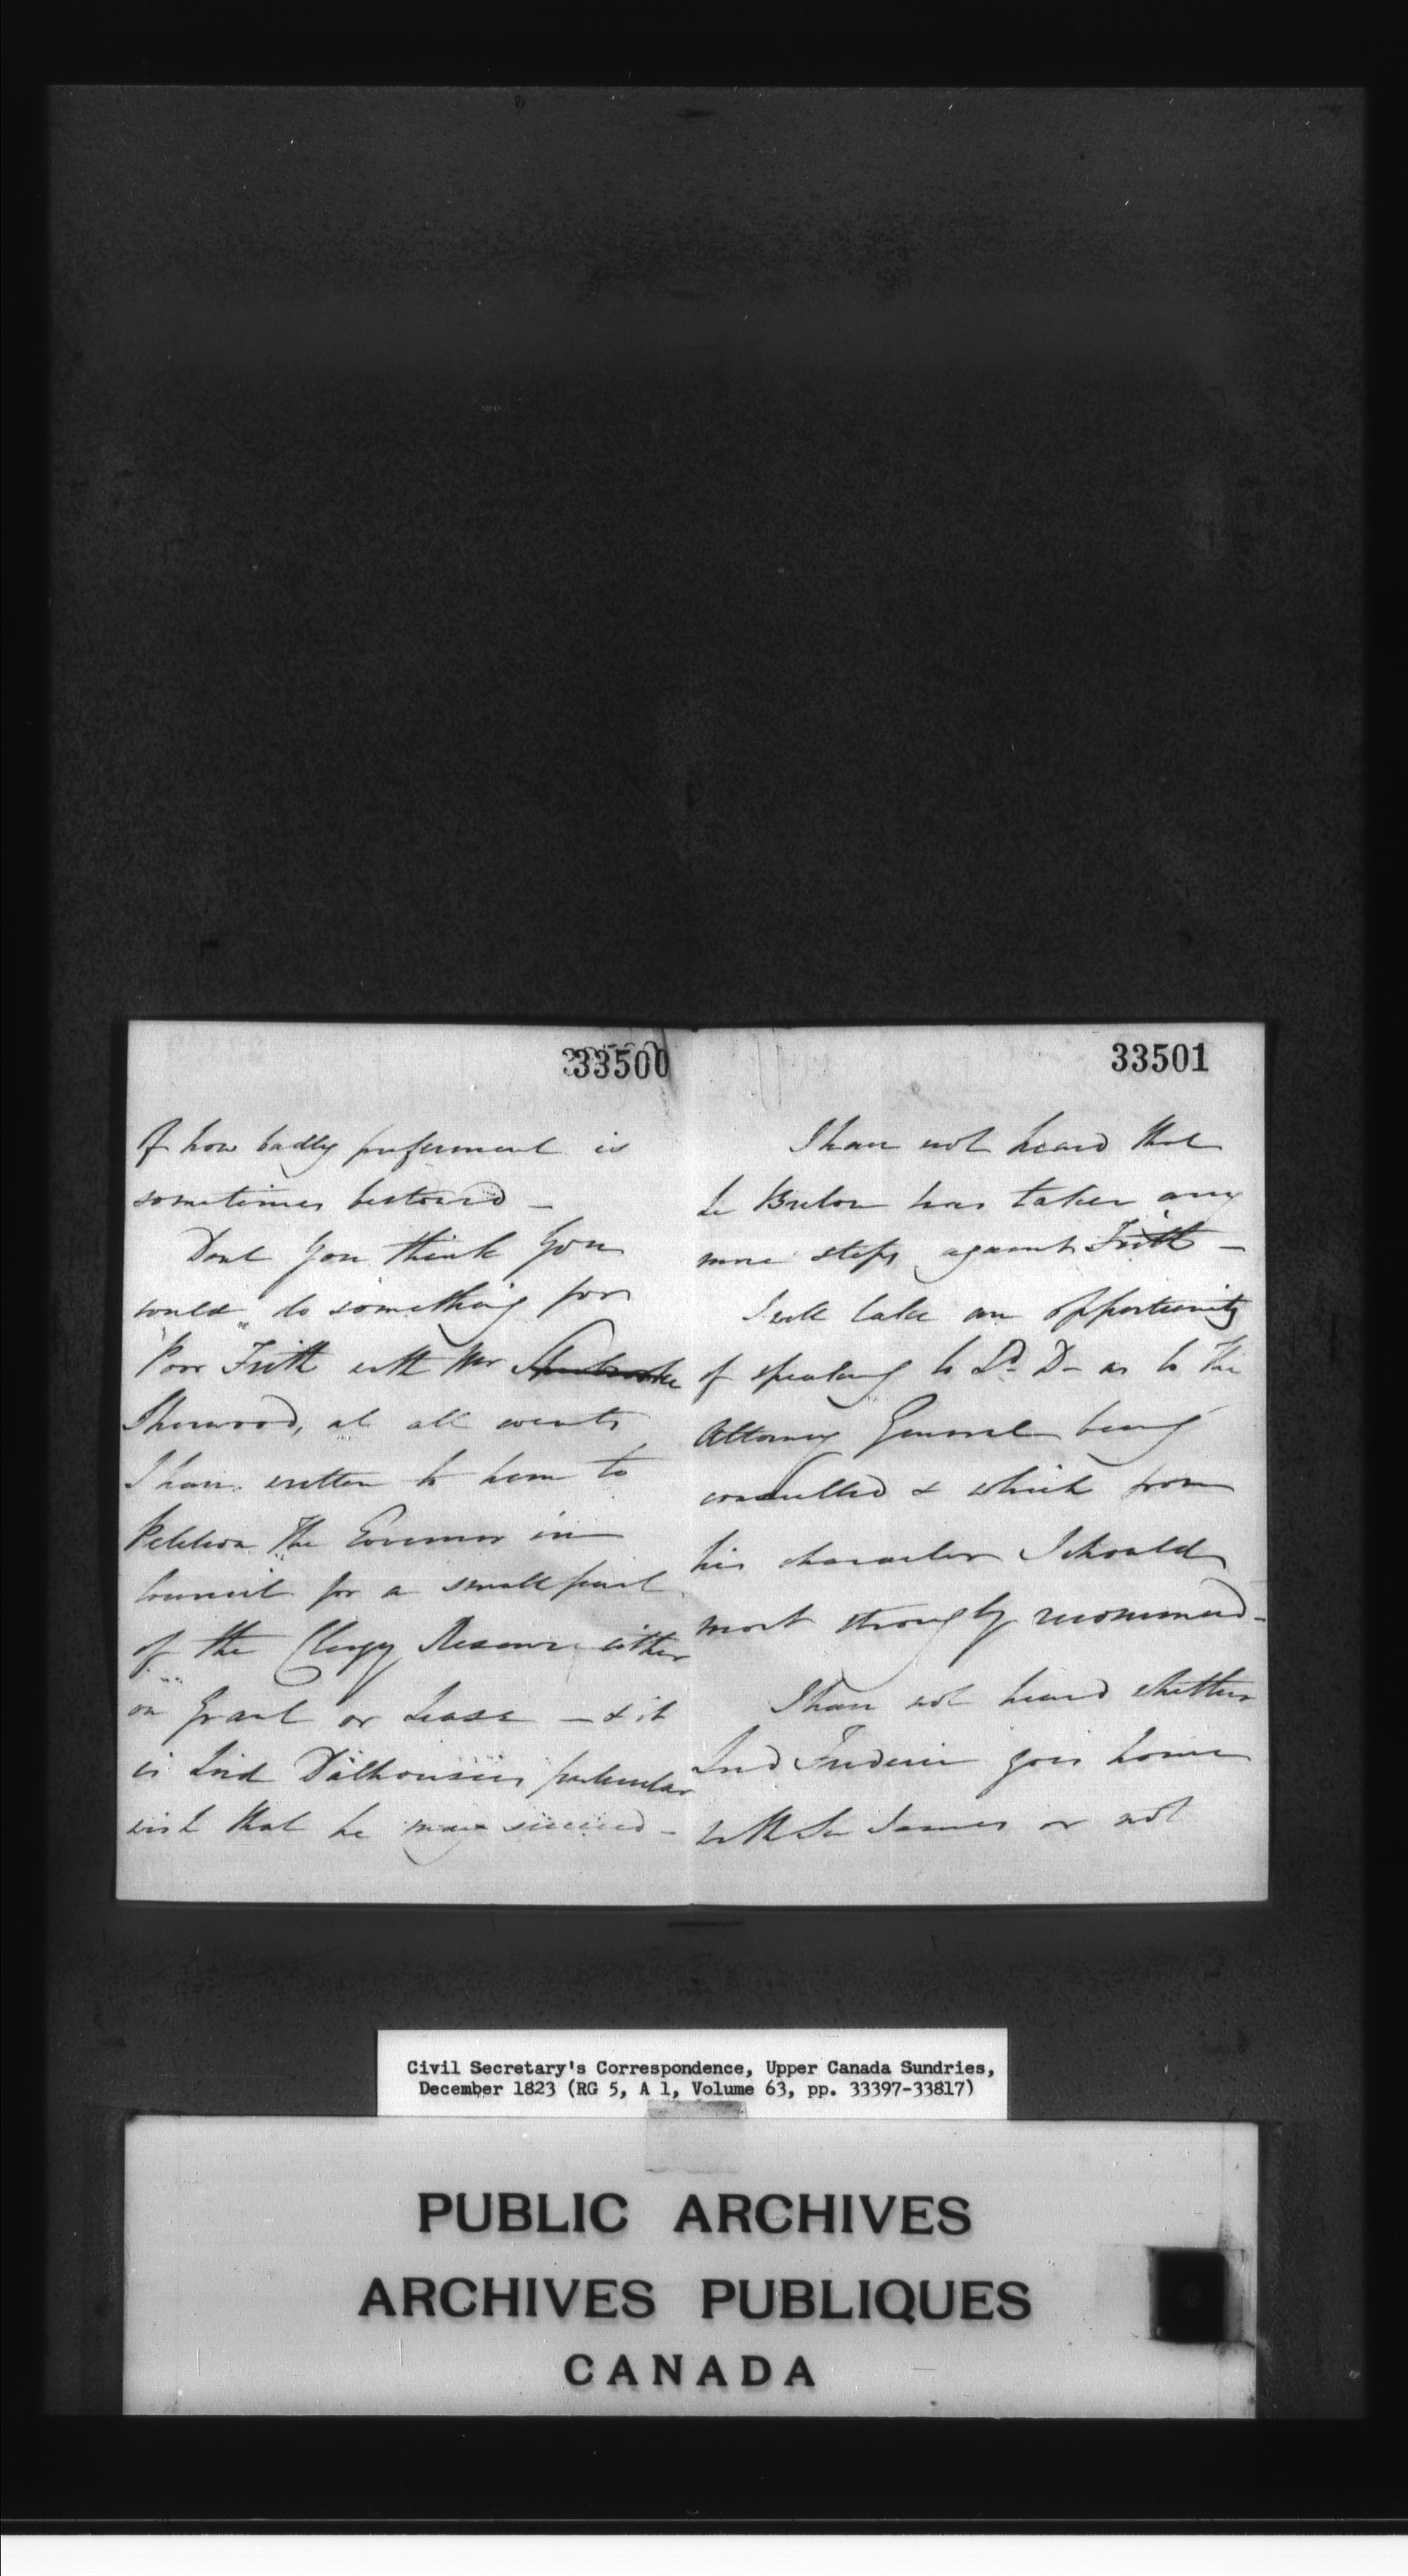 33500
of how badly preferment is
sometimes bestowed –
Dont you think you
could do something for
Poor Firth with Mr
Sherwood, at all events
I have written to him to
Petition The Governor in
Council for a small part
of the Clergy Reserve either
on Grant or Lease – & it
is Lord Dalhousies particular
wish that he may succeed –
33501
I have not heard that
Le Breton has taken any
more steps against Firth –
I will take an opportunity
of speaking to Ld. D – as to the
Attorney General being
consulted & which from
his character I should
most strongly recommend –
I have not heard whether
Lord Frederic goes home
with Sir James or not
Civil Secretary's Correspondence, Upper Canada Sundries,
December 1823 (RG 5, A 1, Volume 63, pp. 33397-33817)
PUBLIC ARCHIVES
ARCHIVES PUBLIQUES
CANADA